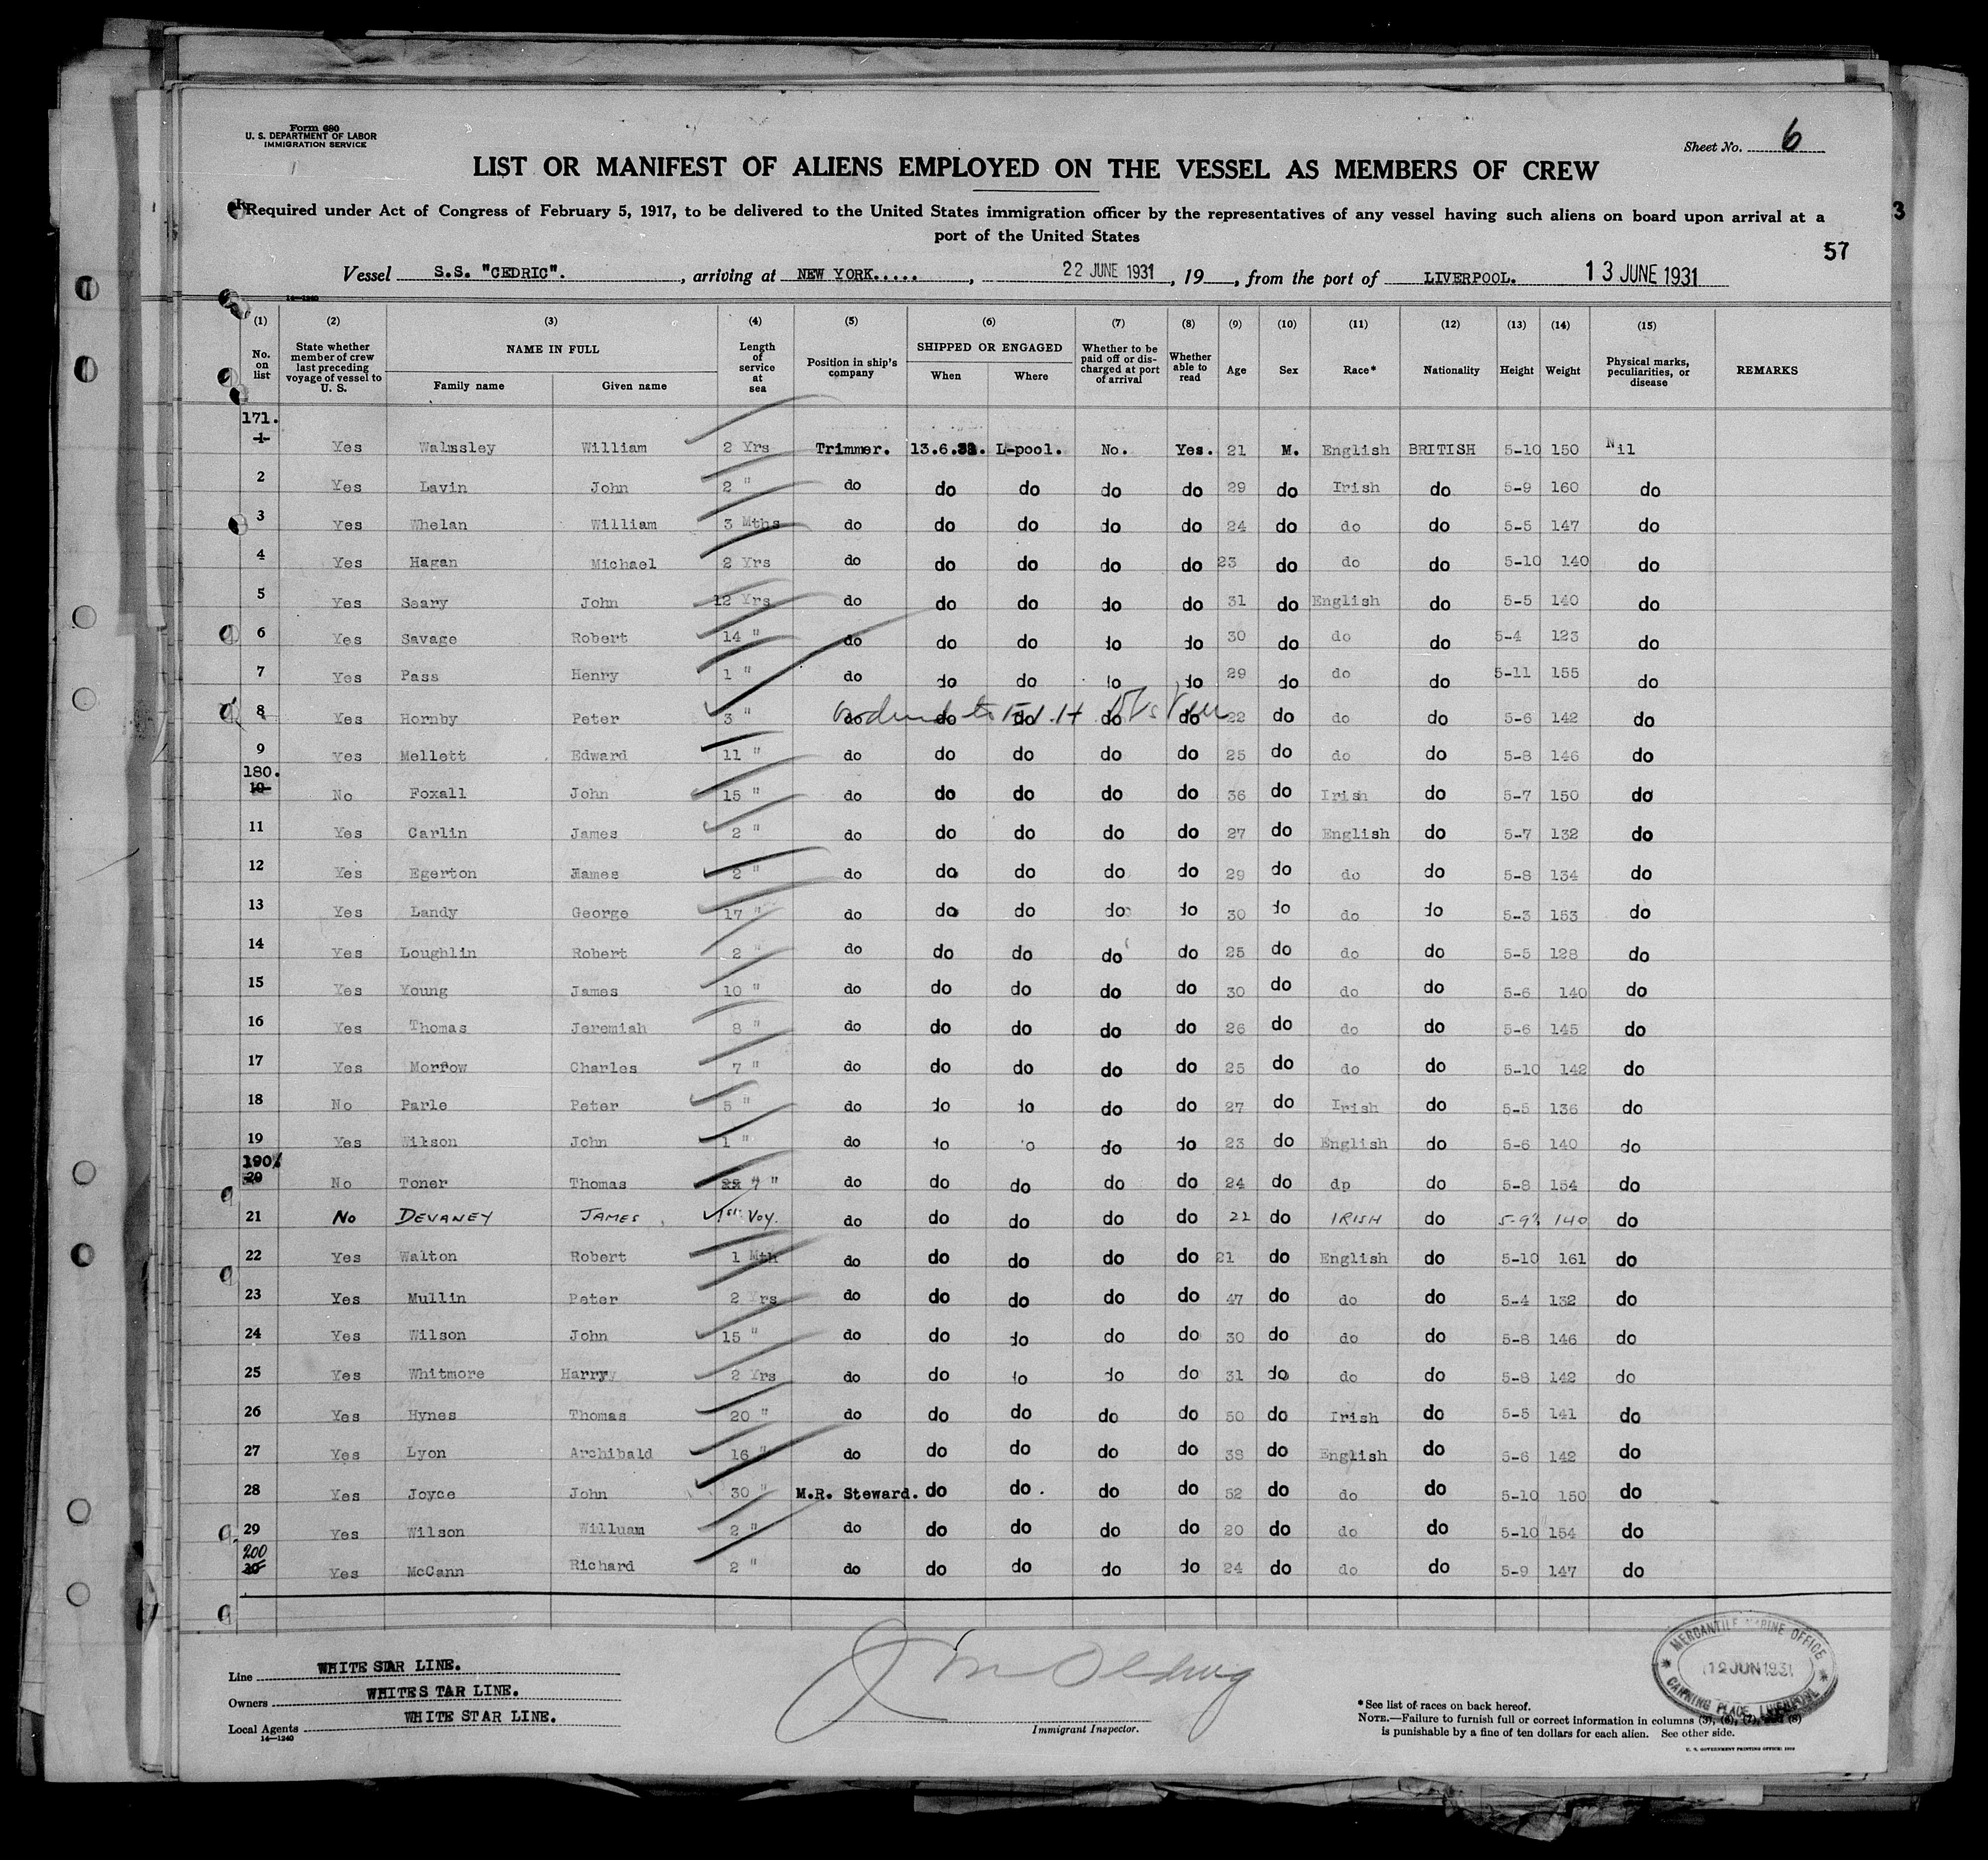 Form 680
U. S. DEPARTMENT OF LABOR
IMMIGRATION SERVICE
Sheet No. 6
LIST OR MANIFEST OF ALIENS EMPLOYED ON THE VESSEL AS MEMBERS OF CREW
Required under Act of Congress of February 5, 1917, to be delivered to the United States immigration officer by the representatives of any vessel having such aliens on board upon arrival at a
port of the United States
3
57
Vessel S.S. "CEDRIC". , arriving at NEW YORK..... , 22 JUNE 1931 , 19 , from the port of LIVERPOOL. 13 JUNE 1931
14—1240
(1) (2) (3) (4) (5) (6) (7) (8) (9) (10) (11) (12) (13) (14) (15)
No. on list | State whether member of crew last preceding voyage of vessel to U. S. | NAME IN FULL | Family name | Given name | Length of service at sea | Position in ship's company | SHIPPED OR ENGAGED | When | Where | Whether to be paid off or discharged at port of arrival | Whether able to read | Age | Sex | Race* | Nationality | Height | Weight | Physical marks, peculiarities, or disease | REMARKS
171.
1 Yes Walmsley William 2 Yrs Trimmer. 13.6.31. L-pool. No. Yes. 21 M. English BRITISH 5-10 150 Nil
2 Yes Lavin John 2 " do do do do do 29 do Irish do 5-9 160 do
3 Yes Whelan William 3 Mths do do do do do 24 do do do 5-5 147 do
4 Yes Hagan Michael 2 Yrs do do do do do 23 do do do 5-10 140 do
5 Yes Seary John 12 Yrs do do do do do 31 do English do 5-5 140 do
6 Yes Savage Robert 14 " do do do do do 30 do do do 5-4 123 do
7 Yes Pass Henry 1 " do do do do do 29 do do do 5-11 155 do
8 Yes Hornby Peter 3 " do do do do do 22 do do do 5-6 142 do
9 Yes Mellett Edward 11 " do do do do do 25 do do do 5-8 146 do
180.
10 No Foxall John 15 " do do do do do 36 do Irish do 5-7 150 do
11 Yes Carlin James 2 " do do do do do 27 do English do 5-7 132 do
12 Yes Egerton James 2 " do do do do do 29 do do do 5-8 134 do
13 Yes Landy George 17 " do do do do do 30 do do do 5-3 153 do
14 Yes Loughlin Robert 2 " do do do do do 25 do do do 5-5 128 do
15 Yes Young James 10 " do do do do do 30 do do do 5-6 140 do
16 Yes Thomas Jeremiah 8 " do do do do do 26 do do do 5-6 145 do
17 Yes Morrow Charles 7 " do do do do do 25 do do do 5-10 142 do
18 No Parle Peter 5 " do do do do do 27 do Irish do 5-5 136 do
19 Yes Wilson John 1 " do do do do do 23 do English do 5-6 140 do
190
20 No Toner Thomas 7 " do do do do do 24 do dp do 5-8 154 do
21 No DEVANEY JAMES 1st Voy. do do do do do 22 do IRISH do 5-9½ 140 do
22 Yes Walton Robert 1 Mth do do do do do 21 do English do 5-10 161 do
23 Yes Mullin Peter 2 Yrs do do do do do 47 do do do 5-4 132 do
24 Yes Wilson John 15 " do do do do do 30 do do do 5-8 146 do
25 Yes Whitmore Harry 2 Yrs do do do do do 31 do do do 5-8 142 do
26 Yes Hynes Thomas 20 " do do do do do 50 do Irish do 5-5 141 do
27 Yes Lyon Archibald 16 " do do do do do 38 do English do 5-6 142 do
28 Yes Joyce John 30 " M.R. Steward. do do . do do 52 do do do 5-10 150 do
29 Yes Wilson Willuam 2 " do do do do do 20 do do do 5-10 154 do
200
30 Yes McCann Richard 2 " do do do do do 24 do do do 5-9 147 do
Line WHITE STAR LINE.
Owners WHITES TAR LINE.
Local Agents WHITE STAR LINE.
14—1240
Immigrant Inspector.
*See list of races on back hereof.
NOTE.—Failure to furnish full or correct information in columns (3), (6), (7), and (8)
is punishable by a fine of ten dollars for each alien. See other side.
U. S. GOVERNMENT PRINTING OFFICE: 1929
MERCANTILE MARINE OFFICE
12 JUN 1931
CANNING PLACE, LIVERPOOL